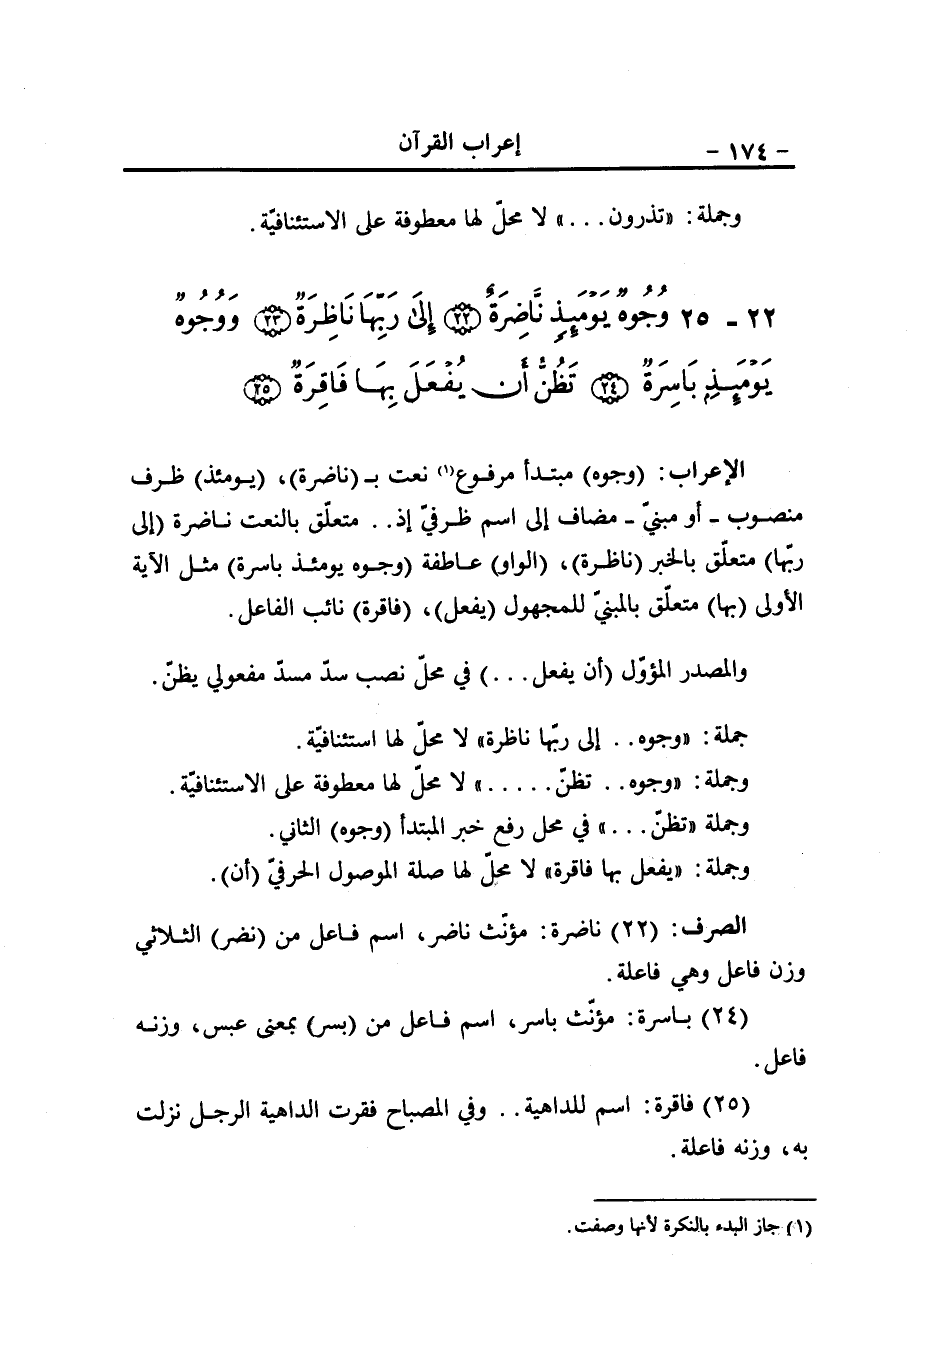 - ١٧٤ -
إعراب القرآن
وجملة: «تذرون...» لا محلّ لها معطوفة على الاستئنافيّة.
٢٢ - ٢٥ وُجُوهٌ يَوْمَئِذٍ نَّاضِرَةٌ ﴿٢٢﴾ إِلَىٰ رَبِّهَا نَاظِرَةٌ ﴿٢٣﴾ وَوُجُوهٌ
يَوْمَئِذٍ بَاسِرَةٌ ﴿٢٤﴾ تَظُنُّ أَن يُفْعَلَ بِهَا فَاقِرَةٌ ﴿٢٥﴾
الإعراب: (وجوه) مبتدأ مرفوع(١) نعت بـ (ناضرة)، (يومئذ) ظرف
منصوب - أو مبنيّ - مضاف إلى اسم ظرفيّ إذ.. متعلّق بالنعت ناضرة (إلى
ربّها) متعلّق بالخبر (ناظرة)، (الواو) عاطفة (وجوه يومئذ باسرة) مثل الآية
الأولى (بها) متعلّق بالمبنيّ للمجهول (يفعل)، (فاقرة) نائب الفاعل.
والمصدر المؤوّل (أن يفعل...) في محلّ نصب سدّ مسدّ مفعولي يظنّ.
جملة: «وجوه.. إلى ربّها ناظرة» لا محلّ لها استئنافيّة.
وجملة: «وجوه.. تظنّ.....» لا محلّ لها معطوفة على الاستئنافيّة.
وجملة «تظنّ...» في محل رفع خبر المبتدأ (وجوه) الثاني.
وجملة: «يفعل بها فاقرة» لا محلّ لها صلة الموصول الحرفيّ (أن).
الصرف: (٢٢) ناضرة: مؤنّث ناضر، اسم فاعل من (نضر) الثلاثي
وزن فاعل وهي فاعلة.
(٢٤) باسرة: مؤنّث باسر، اسم فاعل من (بسر) بمعنى عبس، وزنه
فاعل.
(٢٥) فاقرة: اسم للداهية.. وفي المصباح فقرت الداهية الرجل نزلت
به، وزنه فاعلة.
(١) جاز البدء بالنكرة لأنها وصفت.